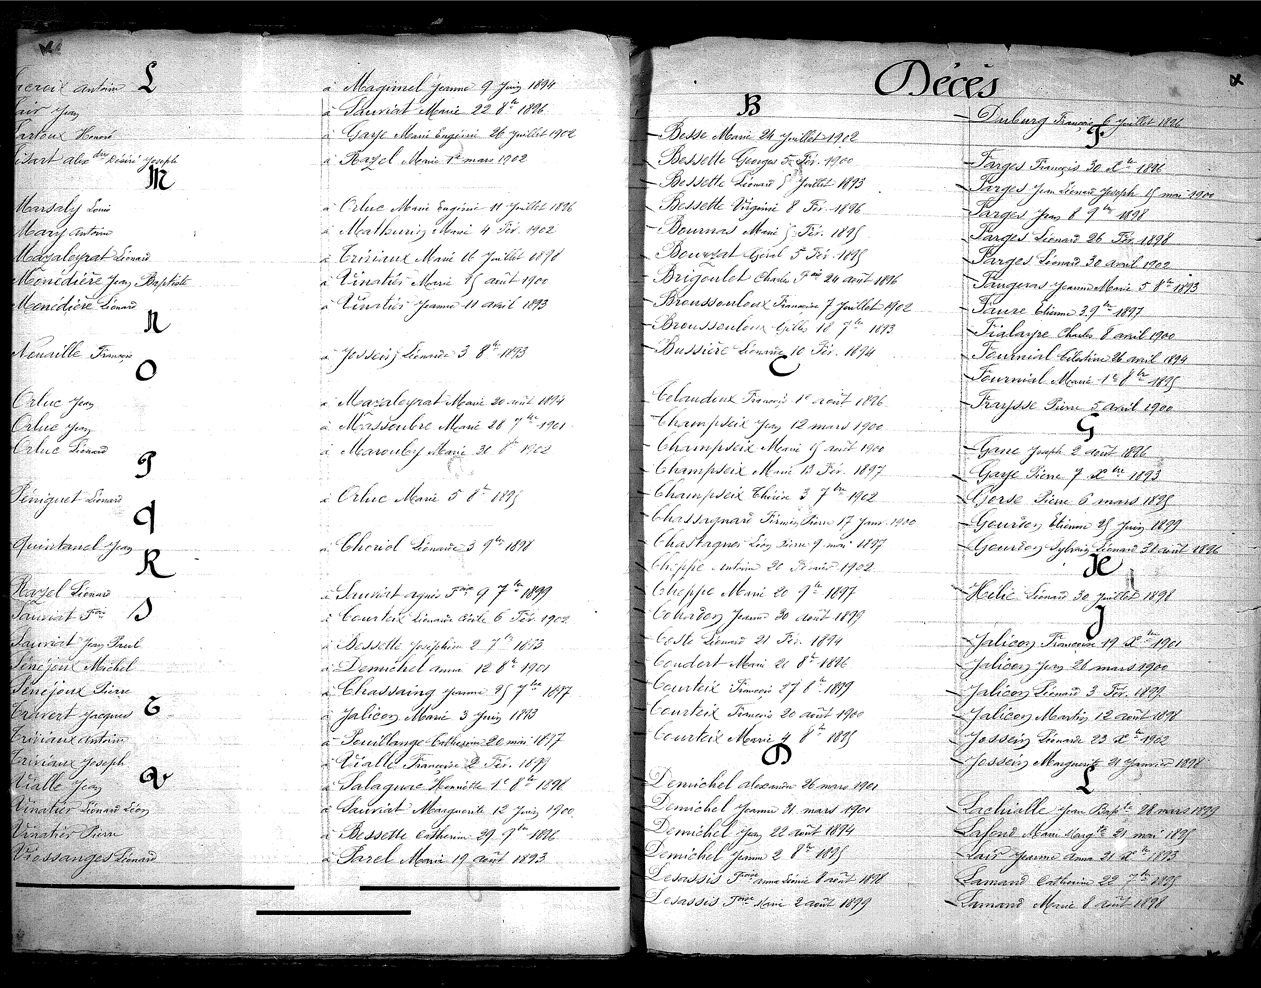 L
Antoine à Magimel Jeanne 9 Juin 1894
Jean à Sauviat Marie 22 8bre 1896
Honoré à Gaye Marie Eugénie 26 Juillet 1902
Alexdre Désiré Joseph à Razel Marie 1er mars 1902
M
Marsaly Louis à Orluc Marie Eugénie 11 Juillet 1896
Mary Antoine à Mathurin Marie 4 Fév. 1902
Mazaleyrat Léonard à Triviaux Marie 16 Juillet 1898
Monédière Jean Baptiste à Vinatier Marie 25 août 1900
Monédière Léonard à Vinatier Jeanne 11 avril 1893
N
Neuville François à Jossein Léonarde 3 8bre 1893
O
Orluc Jean à Mazaleyrat Marie 20 août 1894
Orluc Jean à Massoubre Marie 28 7bre 1901
Orluc Léonard à Marie 31 8bre 1902
P
Péniguet Léonard à Orluc Marie 5 8bre 1895
Q
Quintanel Jean à Léonarde 3 9bre 1898
R
Razel Léonard à Sauviat Agnès Foise 9 7bre 1899
S
Sauviat Fois à Courteix Léonarde Cécile 6 Fév. 1902
Sauviat Jean Paul à Bessette Joséphine 2 7bre 1893
Sénéjoux Michel à Demichel Anna 12 8bre 1901
Sénéjoux Pierre à Chassaing Jeanne 25 7bre 1897
T
Travert Jacques à Jalicon Marie 3 Juin 1893
Triviaux Antoine à Catherine 20 mai 1897
Triviaux Joseph à Vialle Françoise 2 Fév. 1899
V
Vialle Jean à Salagnac Henriette 1er 8bre 1898
Vinatier Léonard Léon à Sauviat Marguerite 12 Juin 1900
Vinatier Pierre à Bessette Catherine 29 9bre 1896
Viossanges Léonard à Marie 19 août 1893
Décès
B
Besse Marie 24 Juillet 1902
Bessette Georges 5 Fév. 1900
Bessette Léonard 5 Juillet 1893
Bessette Virginie 8 Fév. 1896
Bournas Marie 5 Fév. 1895
Bouzat Géral 5 Fév. 1895
Brigoulet Charles Fois 24 août 1896
Broussouloux Françoise 7 Juillet 1902
Broussouloux Gilles 18 7bre 1893
Bussière Léonarde 10 Fév. 1894
C
Celaudoux François 1er août 1896
Champseix Jean 12 mars 1900
Champseix Marie 15 août 1900
Champseix Marie 13 Fév. 1897
Champseix Thérèse 3 7bre 1902
Chassagnard Firmin Pierre 17 Janv. 1900
Chastagner Léon Pierre 9 mai 1897
Cheppe Antoine 20 Février 1902
Cheppe Marie 20 9bre 1897
Coudon Jeanne 30 août 1899
Coste Léonard 21 Fév. 1894
Coudert Marie 21 8bre 1896
Courteix François 27 8bre 1899
Courteix François 20 août 1900
Courteix Marie 4 8bre 1895
D
Demichel Alexandre 26 mars 1901
Demichel Jeanne 31 mars 1901
Demichel Jean 22 août 1894
Demichel Jeanne 2 8bre 1895
Desassis Foise Anna Léonie 8 août 1898
Desassis Foise Marie 2 août 1899
Darburg François 6 Juillet 1896
F
Farges François 30 Xbre 1896
Farges Jean Léonard Joseph 15 mai 1900
Farges Jean 8 9bre 1898
Farges Léonard 26 Fév. 1898
Farges Léonard 30 avril 1902
Faugeras Jeanne Marie 5 8bre 1893
Faure Etienne 3 9bre 1897
Fialayre Charles 8 avril 1900
Fournial Célestine 26 avril 1894
Fournial Marie 1er 8bre 1895
Fraysse Pierre 5 avril 1900
G
Gane Joseph 2 août 1896
Gaye Pierre 7 Xbre 1893
Gorse Pierre 6 mars 1895
Gourdon Etienne 25 Juin 1899
Gourdon Sylvain Léonard 31 août 1896
H
Hélie Léonard 30 Juillet 1898
J
Jalicon Françoise 19 Xbre 1901
Jalicon Jean 28 mars 1900
Jalicon Léonard 3 Fév. 1899
Jalicon Martin 12 août 1898
Jossein Léonarde 23 Xbre 1902
Jossein Marguerite 21 Janvier 1898
L
Lachialle Jean Bapte 28 mars 1899
Lafond Marie Margte 21 mai 1895
Lair Jeanne Anna 21 Xbre 1893
Lamand Catherine 22 7bre 1895
Lamand Marie 8 août 1898